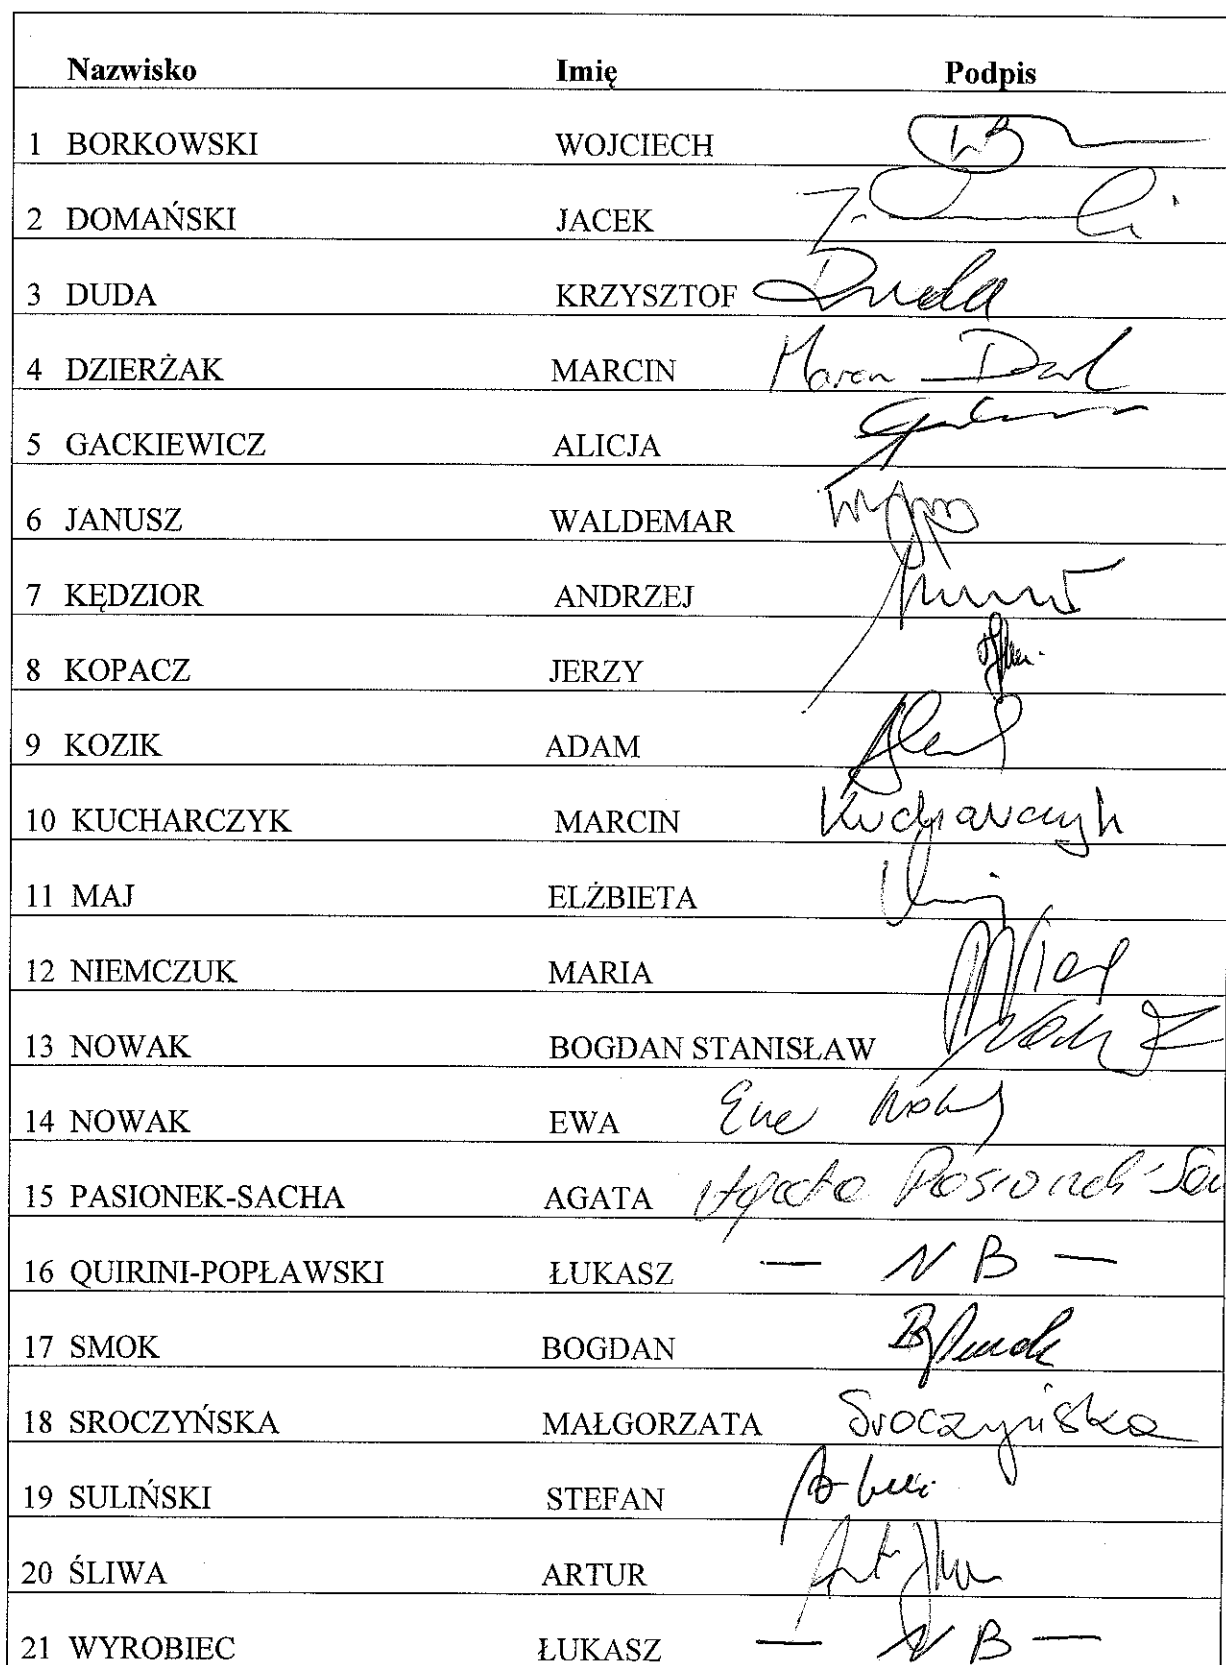 Nazwisko Imię Podpis
1 BORKOWSKI WOJCIECH WB
2 DOMAŃSKI JACEK
3 DUDA KRZYSZTOF Duda
4 DZIERŻAK MARCIN Marcin
5 GACKIEWICZ ALICJA
6 JANUSZ WALDEMAR
7 KĘDZIOR ANDRZEJ
8 KOPACZ JERZY
9 KOZIK ADAM
10 KUCHARCZYK MARCIN Kucharczyk
11 MAJ ELŻBIETA
12 NIEMCZUK MARIA
13 NOWAK BOGDAN STANISŁAW
14 NOWAK EWA Ewa Nowak
15 PASIONEK-SACHA AGATA Agata Pasionek-Sa
16 QUIRINI-POPŁAWSKI ŁUKASZ — NB —
17 SMOK BOGDAN BSmok
18 SROCZYŃSKA MAŁGORZATA Sroczyńska
19 SULIŃSKI STEFAN
20 ŚLIWA ARTUR
21 WYROBIEC ŁUKASZ — NB —